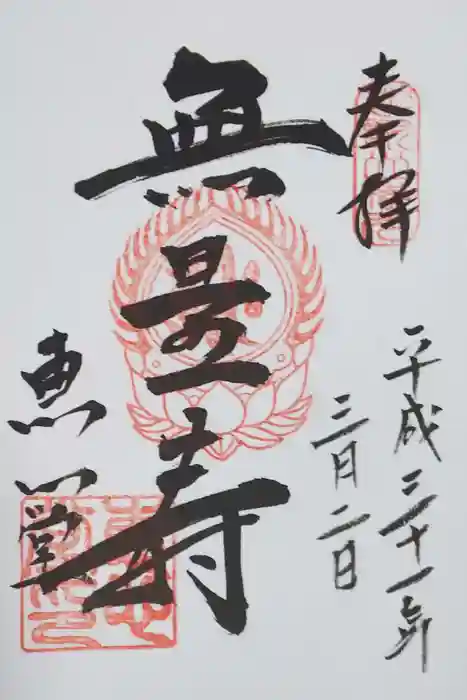 奉拝
平成三十一年
三月二日
無量寿
恵光堂